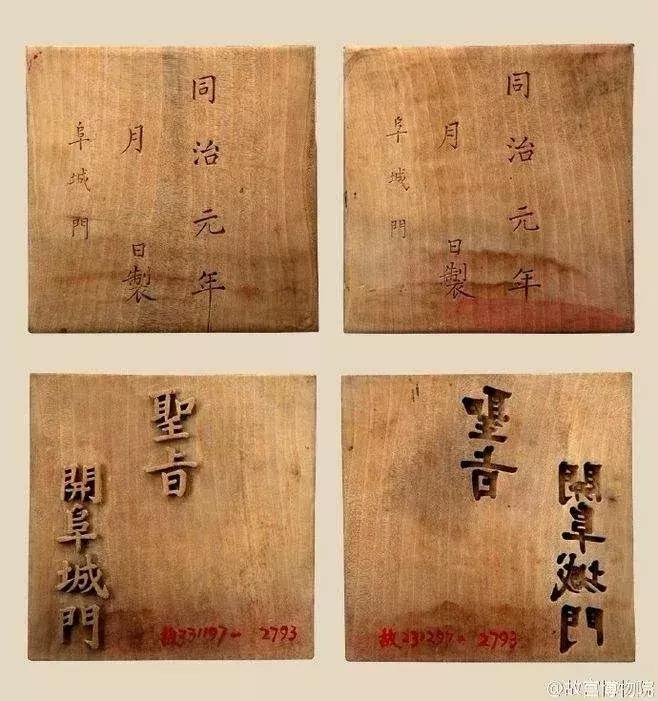 同治元年
月 日製
阜城門
同治元年
月 日製
阜城門
聖旨
開阜城門
2793
聖旨
開阜城門
故231297- 2793
@故宫博物院